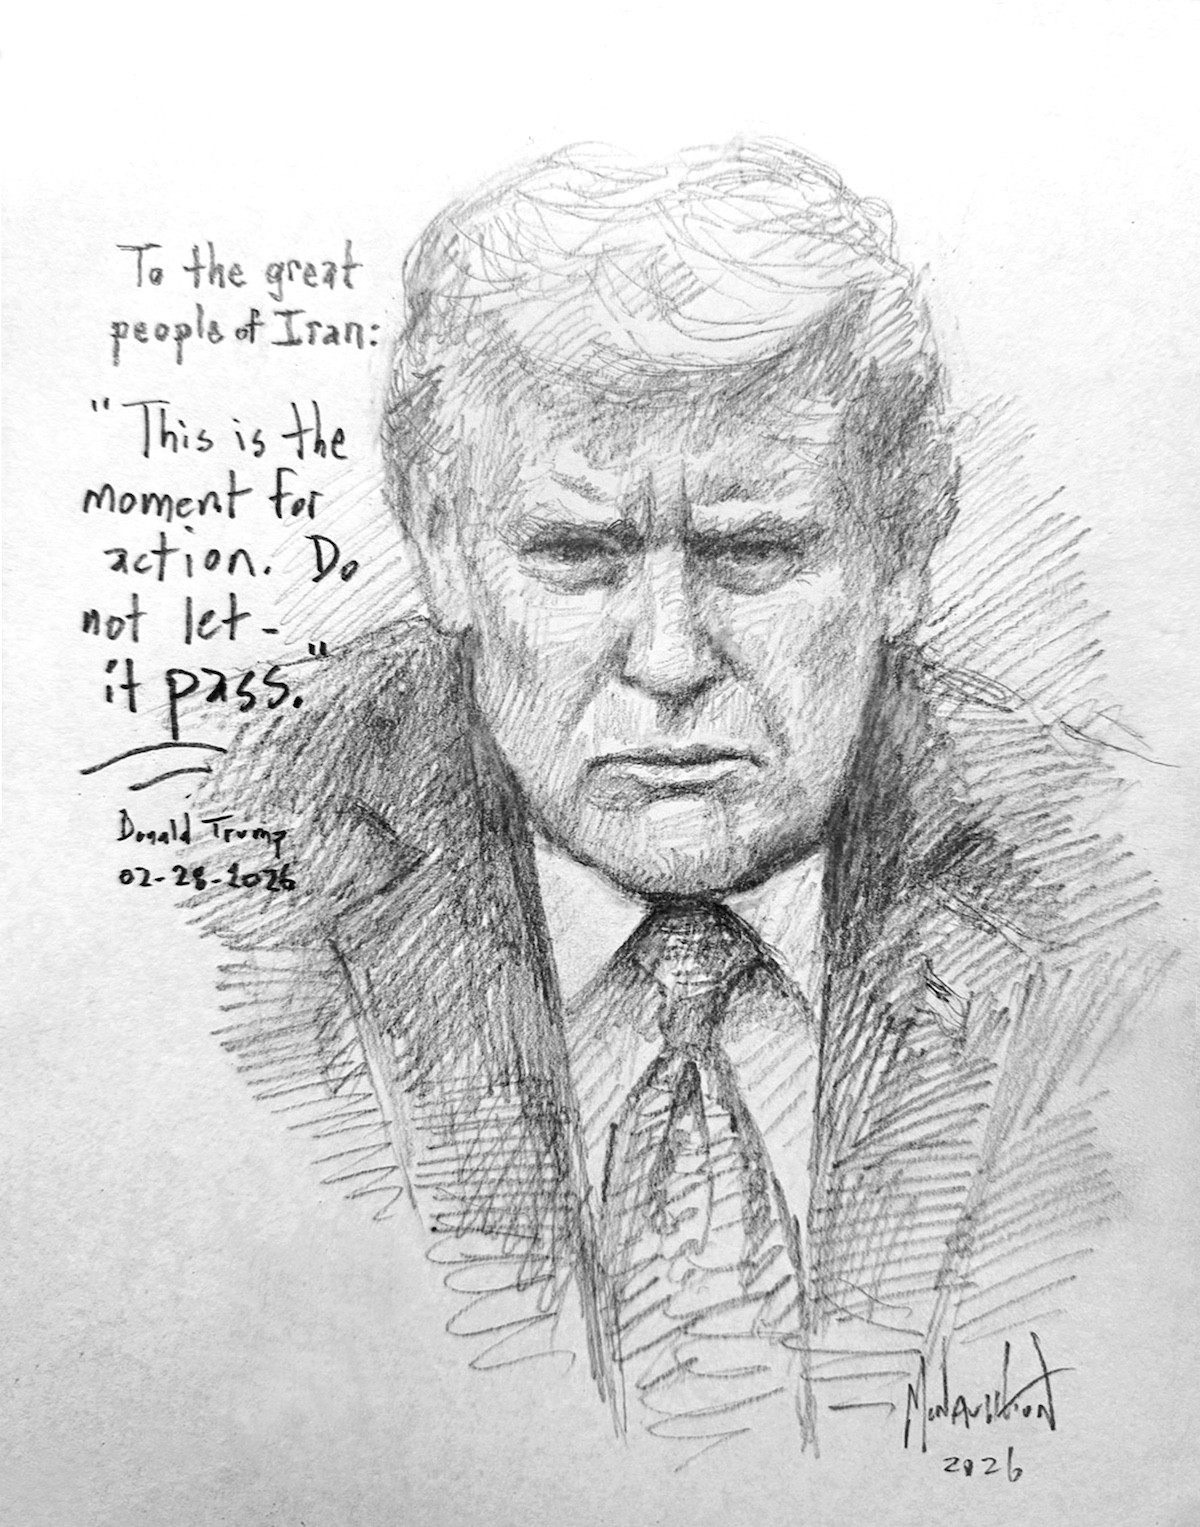 To the great
people of Iran:
"This is the
moment for
action. Do
not let-
it pass."
Donald Trump
02-28-2026
2026